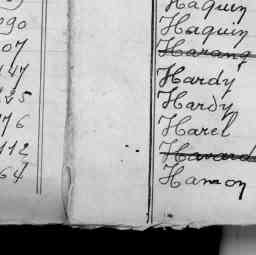 Haquin
090 Haquin
07 Harang
147 Hardy
125 Hardy
76 Harel
112 Havard
64 Hamon